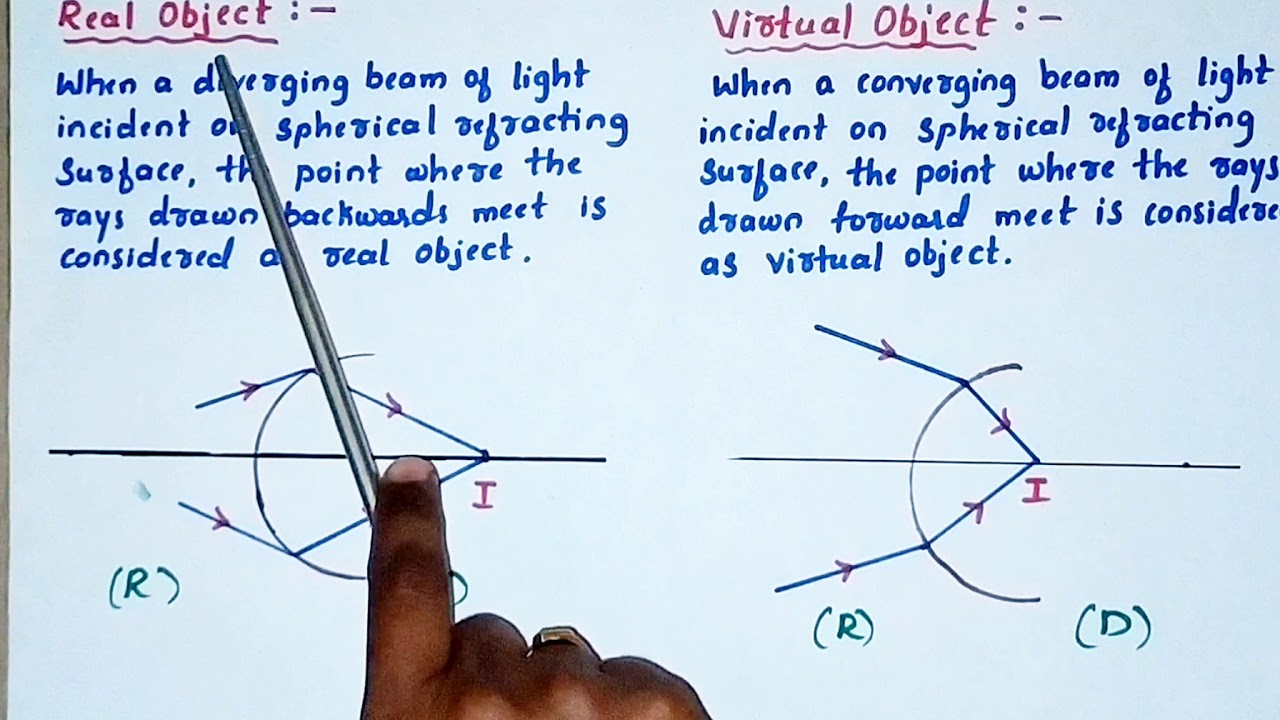 Real Object :-
When a diverging beam of light
incident on spherical refracting
surface, the point where the
rays drawn backwards meet is
considered as real object.
I
(R)
Virtual Object :-
When a converging beam of light
incident on spherical refracting
surface, the point where the rays
drawn forward meet is considere
as virtual object.
I
(R)
(D)